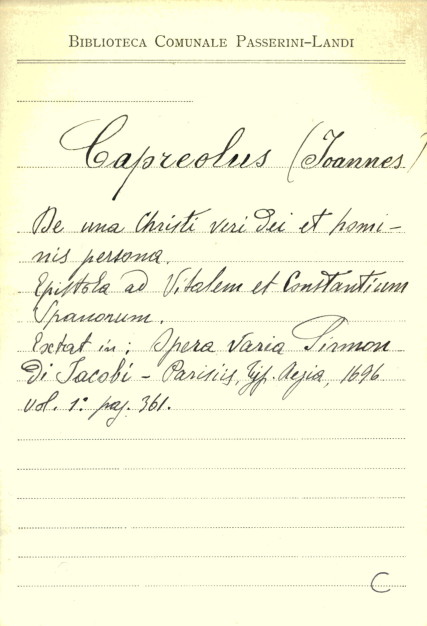 BIBLIOTECA COMUNALE PASSERINI-LANDI
Capreolus (Joannes)
De una Christi veri Dei et homi-
nis persona.
Epistola ad Vitalem et Constantium
Spanorum.
Extat in: Opera varia Sirmon
di Jacobi - Parisiis, Typ. Regia, 1696
vol. 1º pag. 361.
C